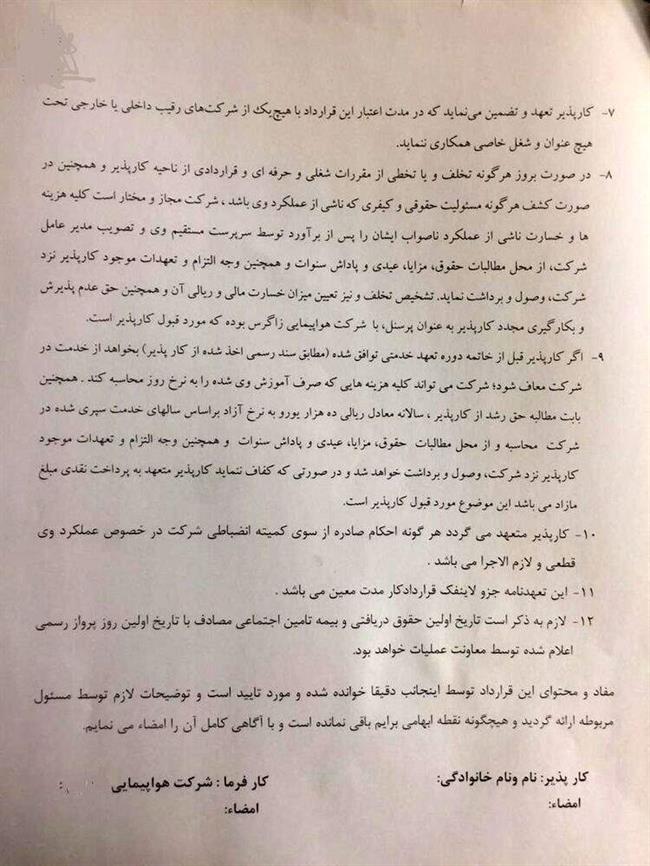 ۷- کارپذیر تعهد و تضمین می‌نماید که در مدت اعتبار این قرارداد با هیچ‌یک از شرکت‌های رقیب داخلی یا خارجی تحت
هیچ عنوان و شغل خاصی همکاری ننماید.
۸- در صورت بروز هرگونه تخلف و یا تخطی از مقررات شغلی و حرفه ای و قراردادی از ناحیه کارپذیر و همچنین در
صورت کشف هرگونه مسئولیت حقوقی و کیفری که ناشی از عملکرد وی باشد ، شرکت مجاز و مختار است کلیه هزینه
ها و خسارت ناشی از عملکرد ناصواب ایشان را پس از برآورد توسط سرپرست مستقیم وی و تصویب مدیر عامل
شرکت، از محل مطالبات حقوق، مزایا، عیدی و پاداش سنوات و همچنین وجه التزام و تعهدات موجود کارپذیر نزد
شرکت، وصول و برداشت نماید. تشخیص تخلف و نیز تعیین میزان خسارت مالی و ریالی آن و همچنین حق عدم پذیرش
و بکارگیری مجدد کارپذیر به عنوان پرسنل، با شرکت هواپیمایی زاگرس بوده که مورد قبول کارپذیر است.
۹- اگر کارپذیر قبل از خاتمه دوره تعهد خدمتی توافق شده (مطابق سند رسمی اخذ شده از کار پذیر) بخواهد از خدمت در
شرکت معاف شود؛ شرکت می تواند کلیه هزینه هایی که صرف آموزش وی شده را به نرخ روز محاسبه کند . همچنین
بابت مطالبه حق رشد از کارپذیر ، سالانه معادل ریالی ده هزار یورو به نرخ آزاد براساس سالهای خدمت سپری شده در
شرکت محاسبه و از محل مطالبات حقوق، مزایا، عیدی و پاداش سنوات و همچنین وجه التزام و تعهدات موجود
کارپذیر نزد شرکت، وصول و برداشت خواهد شد و در صورتی که کفاف ننماید کارپذیر متعهد به پرداخت نقدی مبلغ
مازاد می باشد این موضوع مورد قبول کارپذیر است.
۱۰- کارپذیر متعهد می گردد هر گونه احکام صادره از سوی کمیته انضباطی شرکت در خصوص عملکرد وی
قطعی و لازم الاجرا می باشد .
۱۱- این تعهدنامه جزو لاینفک قراردادکار مدت معین می باشد .
۱۲- لازم به ذکر است تاریخ اولین حقوق دریافتی و بیمه تامین اجتماعی مصادف با تاریخ اولین روز پرواز رسمی
اعلام شده توسط معاونت عملیات خواهد بود.
مفاد و محتوای این قرارداد توسط اینجانب دقیقا خوانده شده و مورد تایید است و توضیحات لازم توسط مسئول
مربوطه ارائه گردید و هیچگونه نقطه ابهامی برایم باقی نمانده است و با آگاهی کامل آن را امضاء می نمایم.
کار پذیر: نام ونام خانوادگی:
امضاء:
کار فرما : شرکت هواپیمایی :
امضاء: